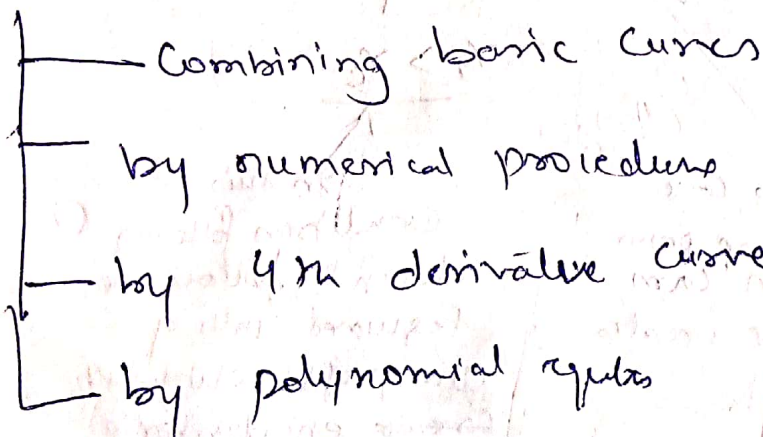 Combining basic curves
by numerical procedure
by 4th derivative curve
by polynomial